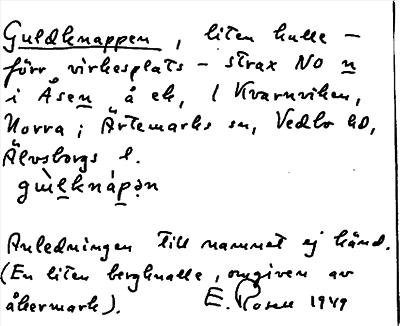 Guldknappen, liten kulle –
förr virkesplats – strax NO n
i Åsen å ek, 1 Kvarnviken,
Norra; Ärtemarks sn, Vedbo hd,
Älvsborgs l.
Anledningen till namnet ej känd.
(En liten bergknalle, omgiven av
åkermark). E. Rosen 1949